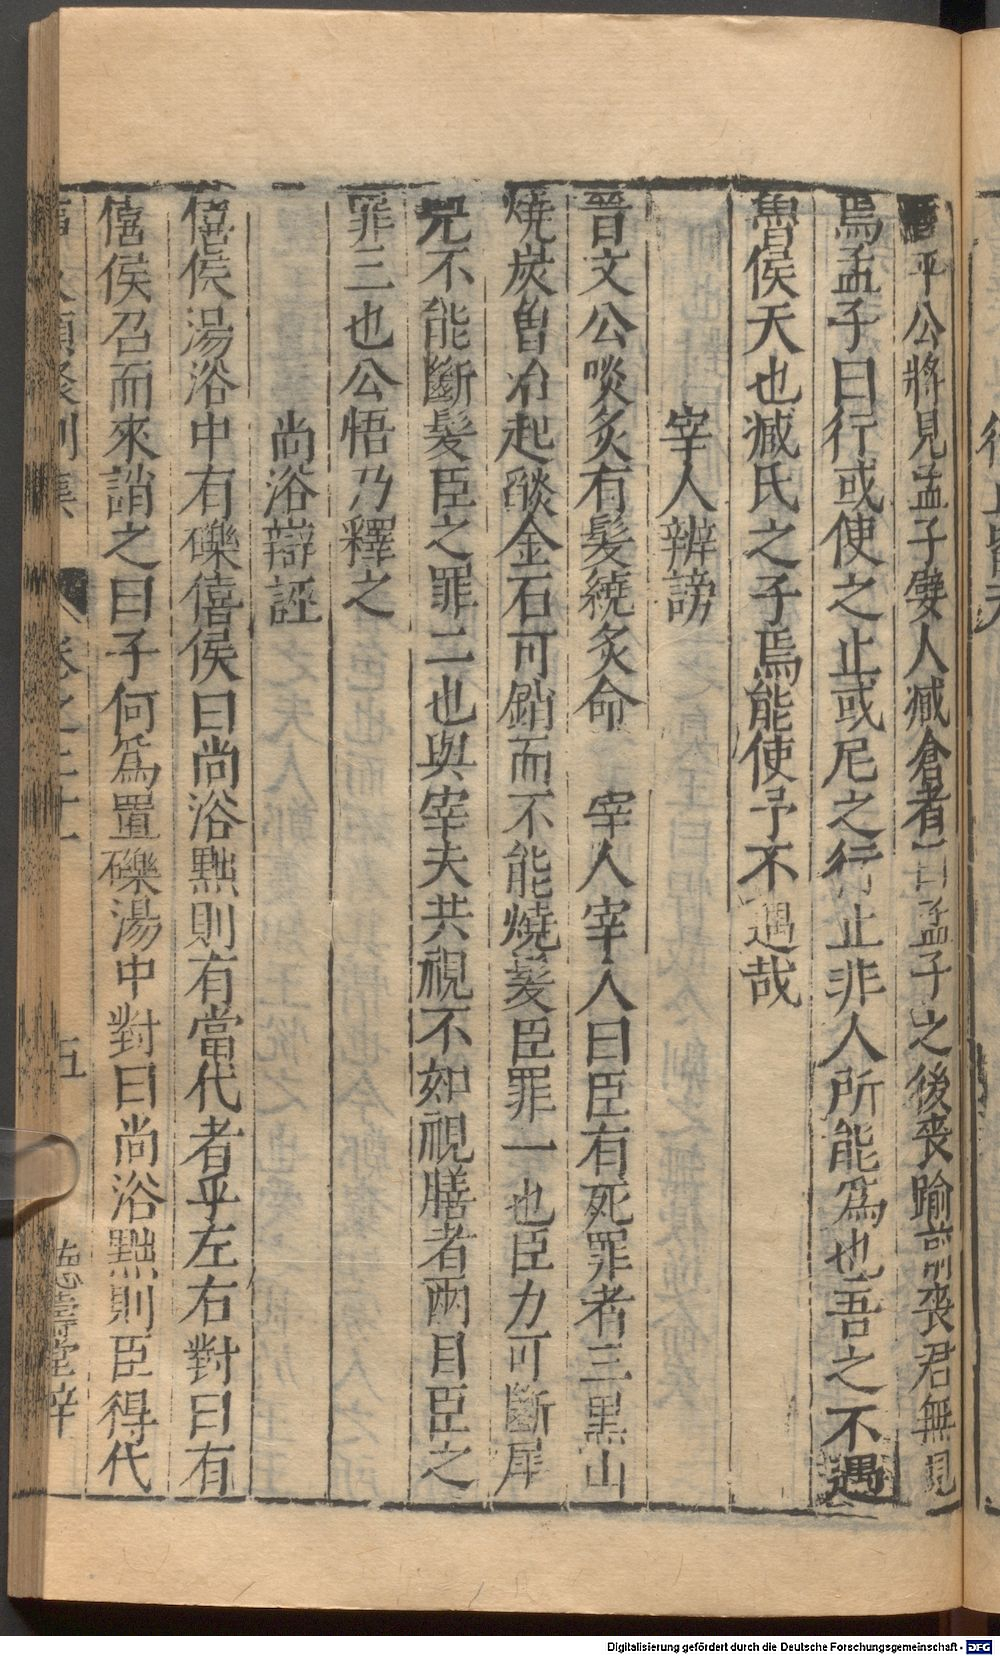 魯平公將見孟子嬖人臧倉者曰孟子之後喪踰前喪君無見
焉孟子曰行或使之止或尼之行止非人所能為也吾之不遇
魯侯天也臧氏之子焉能使予不遇哉
宰人辨謗
晉文公啖炙有髮繞炙命 宰人宰人曰臣有死罪者三黑山
燒炭曾冶起燄金石可銷而不能燒髮臣罪一也臣力可斷犀
兕不能斷髮臣之罪二也與宰夫共視不如視膳者兩目臣之
罪三也公悟乃釋之
尚浴辯誣
僖侯湯浴中有礫僖侯曰尚浴黜則有當代者乎左右對曰有
僖侯召而來誚之曰子何為置礫湯中對曰尚浴黜則臣得代
卷之二十 五 德壽堂梓
Digitalisierung gefördert durch die Deutsche Forschungsgemeinschaft - DFG